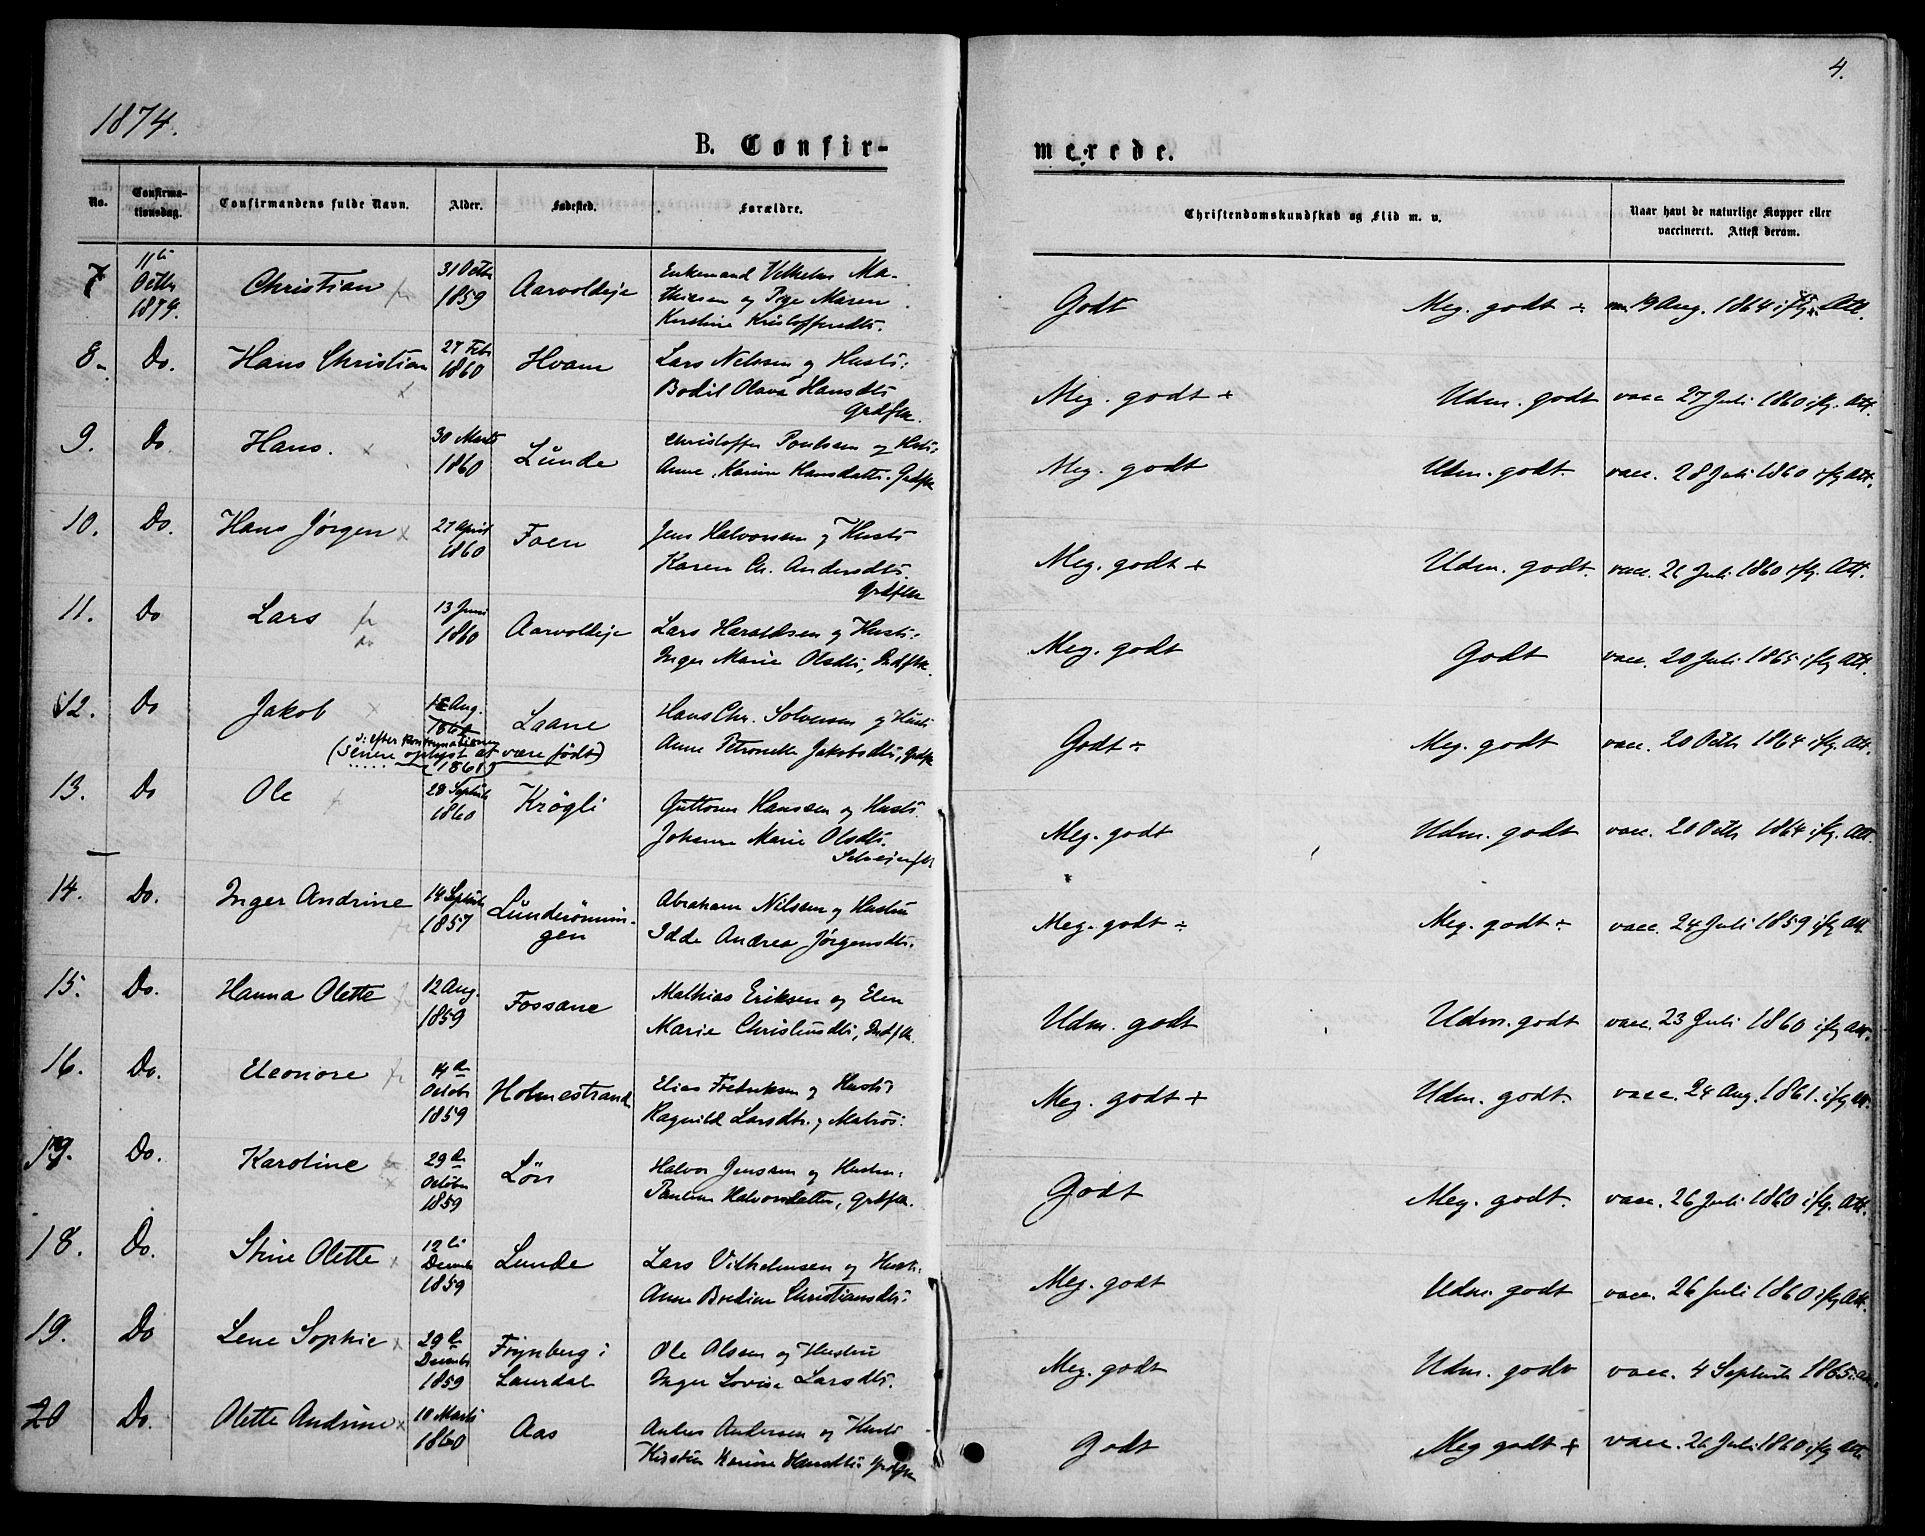 1874.
4.
B. Confir-
merede.
No.
Confirma-
tionsdag.
Confirmandens fulde Navn.
Alder.
Fødested.
Forældre.
Christendomskundskab og Flid m. v.
Naar havt de naturlige Kopper eller
vaccineret. Attest derom.
7 11te Octbr 1874. Christian 31 Octbr 1859 Aarvoldeje
Enkemand Vilhelm Ma-
thiesen og Pige Maren
Kirstine Kristoffersdtr.
Godt Meg. godt ÷ 19 Aug. 1864 ifg. Att.
8 Do. Hans Christian 27 Febr 1860 Hvam
Lars Nelssen og Hustr:
Bodil Olava Hansdtr
Grdflk.
Meg. godt + Udm. godt vacc 27 Juli 1860 ifg. Att.
9. Do. Hans. 30 Marts 1860 Lunde
Christoffer Poulssen og Hstr:
Anne Karine Hansdattr. Grdflk
Meg. godt Udm. godt. vacc. 28 Juli 1860 ifg Att.
10. Do. Hans Jørgen 27 April 1860 Foen
Jens Halvorssen og Hustr
Karen Ch. Andersdtr.
Grdflk
Meg. godt + Udm. godt. vacc. 26 Juli 1860 ifg. Att.
11. Do Lars 13 Juni 1860 Aarvoldeje
Lars Haraldsen og Hustr:
Inger Marie Olsdtr, Indflk.
Meg. godt Godt vacc. 20 Juli 1865 ifg Att.
12. Do Jakob Aug. 1860 Laane
(senere oplyst at være født)
(1861)
ɔ: efter Konfirmationen
Hans Chr. Solvesen og Hustr
Anne Petronelle Jakobsdtr, Grdflk
Godt ÷ Meg. godt vacc. 20 Octbr 1864 ifg. Att.
13. Do Ole 28 Septbr 1860 Krøgli
Guttorm Hanssen og Hustr.
Johanne Marie Olsdtr.
Selveierflk
Meg. godt Udm. godt vacc. 20 Octbr 1864 ifg. Att.
14. Do. Inger Andrine 14 Septbr 1857 Lunderønnin-
gen
Abraham Nilssen og Hustru
Idde Andrea Jørgensdtr.
Meg. godt ÷ Meg. godt ÷ vacc. 24 Juli 1859 ifg Att.
15. Do. Hanna Olette 12 Aug. 1859 Fossane
Mathias Eriksen og Elen
Marie Christensdtr, Indflk.
Udm. godt Udm. godt vacc. 23 Juli 1860 ifg Att.
16. Do. Eleonore 14de Octobr 1859 Holmestrand
Elias Fredriksen og Hustr:
Ragnild Larsdtr. Matros:
Meg. godt + Udm. godt. vacc. 24 Aug. 1861. ifg Att.
17. Do. Karoline 29de October 1859 Løn
Halvor Jenssen og Hustru:
Pauline Halvorsdatter, Grdflk.
Godt Meg. godt. vacc. 26 Juli 1860 ifg. Att.
18. Do. Stine Olette 12te Decembr 1859 Lunde
Lars Vilhelmsen og Hustr:
Anne Bredine Christiansdtr:
Meg. godt Udm. godt vacc. 26 Juli 1860 ifg Att.
19. Do Lene Sophie 29de Decembr 1859 Frynberg i
Laurdal
Ole Olsen og Hustru
Inger Lovise Larsdtr.
Meg. godt Udm. godt vacc. 4 Septembr 1865
20 Do. Olette Andrine 10 Marts 1860 Aas
Anders Andersen og Hustr
Kirstine Karine Hansdtr: Grdflk
Godt Meg godt + vacc. 26 Juli 1860 ifg Att.